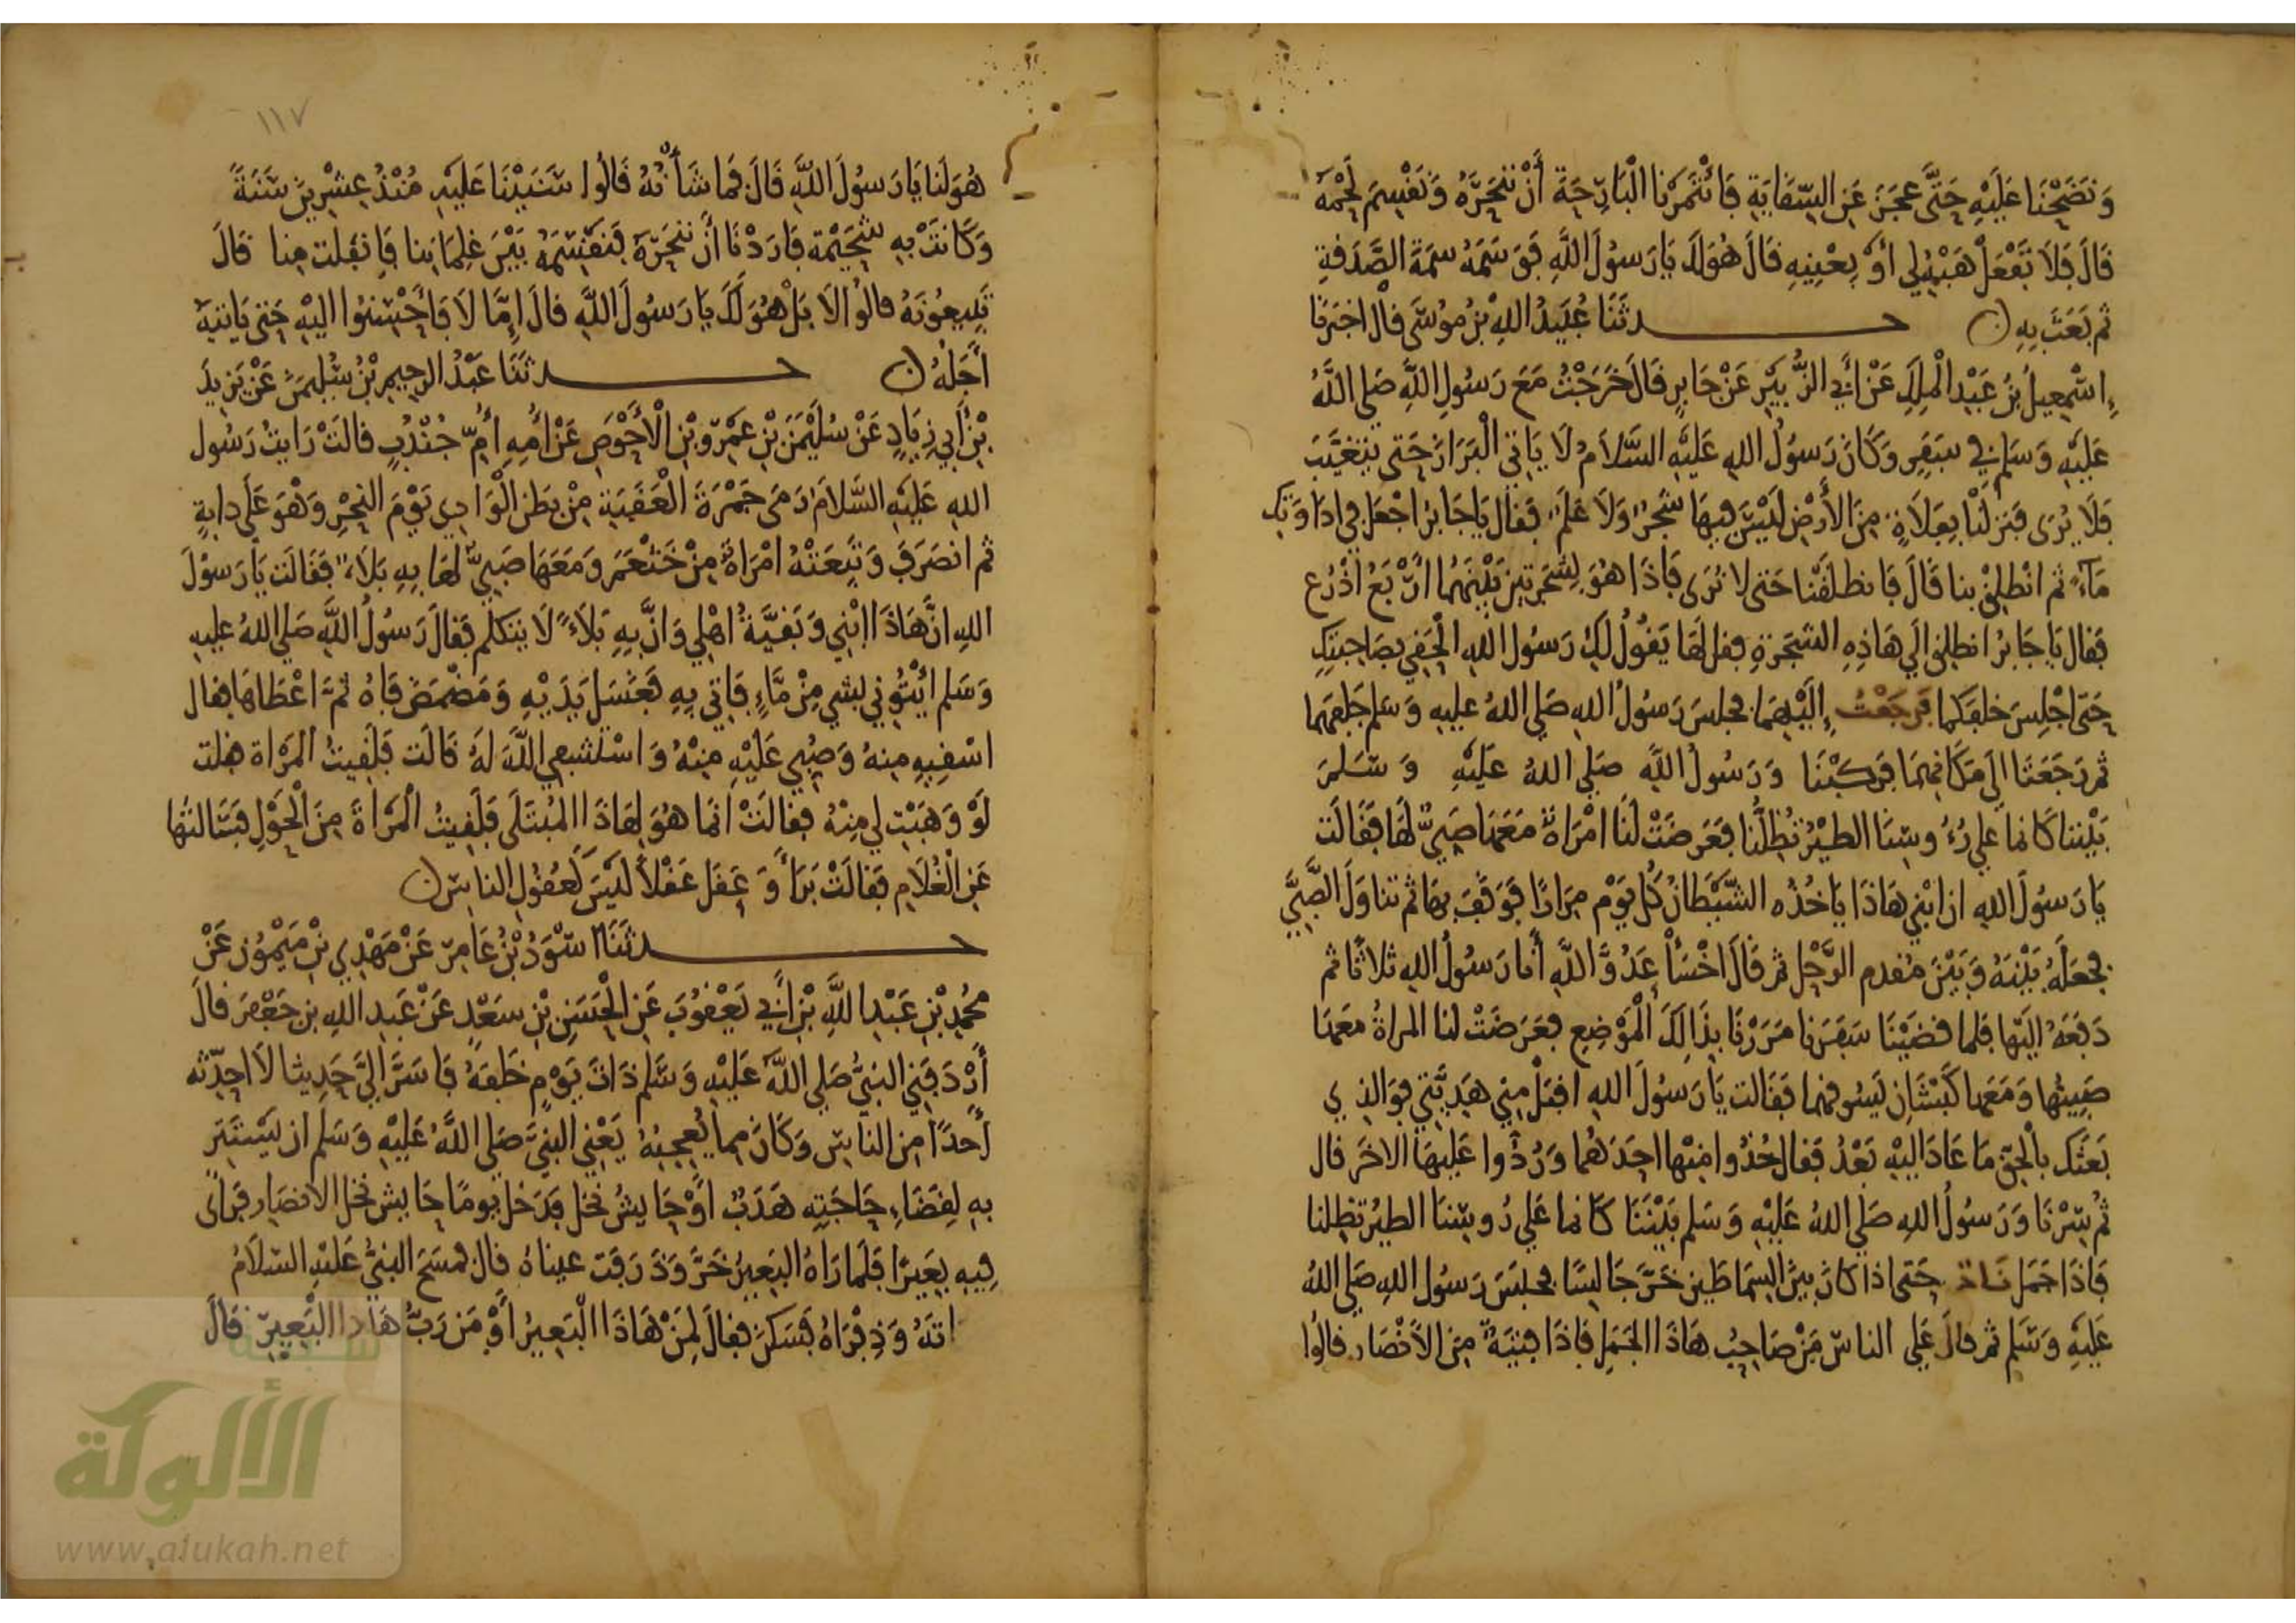 وَنَضَحْنَا عَلَيْهِ حَتَّى عَجَزَ عَنِ السِّقَايَةِ فَأْتَمَرْنَا الْبَارِحَةَ أَنْ نَنْحَرَهُ وَنَقْسِمَ لَحْمَهُ
قَالَ فَلَا تَفْعَلْ هَبْهُ لِي أَوْ بِعْنِيهِ قَالَ هُوَ لَكَ يَا رَسُولَ اللَّهِ فَوَسَمَهُ سِمَةَ الصَّدَقَةِ
ثم بَعَثَ بِهِ ن حـــدثَنَا عُبَيْدُ اللهِ بْنُ مُوسَى قال اخبَرَنا
إِسْمعِيلُ بْنُ عَبْدِ الْمَلِكِ عَنْ أَبِي الزُّبَيْرِ عَنْ جَابِرٍ قَالَ خَرَجْتُ مَعَ رَسُولِ اللَّهِ صَلى اللَّهُ
عَلَيْهِ وَسَلم في سَفَرٍ وَكَانَ رَسُولُ اللهِ عَلَيْهِ السَّلَامُ لَا يَاتي الْبَرَازَ حَتى يَتَغَيَّبَ
فَلَا يُرَى فَنَزَلْنَا بِفَلَاةٍ مِنَ الْأَرْضِ لَيْسَ فِيهَا شَجَرٌ وَلَا عَلَمٌ فَقَالَ يَا جَابِرُ اجْعَلْ في ادَاوَتِكَ
مَاءً ثم انْطَلِقْ بنا قَالَ فَانطلَقْنَا حَتى لا نُرَى فَاذَا هُوَ بِشَجَرَتَيْنِ بَيْنَهُمَا ارْبَعُ اذْرُع
فَقال يَا جَابِرُ انطلِق الَى هَاذِهِ الشَّجَرَةِ فقل لَهَا يَقُولُ لَكِ رَسُولُ اللهِ الْحَقِي بِصَاحِبَتِكِ
حَتّى اجْلِسَ خلفَكما فَرَجَعْتُ إِلَيْهِمَا فجلسَ رَسُولُ اللهِ صَلى اللهُ عليهِ وَسَلم خَلفهما
ثم رَجَعَتَا الَى مَكَانِهِمَا فَرَكِبْنَا وَرَسُولُ اللَّهِ صَلى اللهُ عَلَيْهِ وَسَلمَ
بَيْننا كَانما عَلى رُءُوسِنَا الطيْرُ تُظِلُّنا فعَرَضَتْ لَنَا امْرَاةٌ مَعَهَا صَبِيٌّ لَهَا فَقَالَت
يَا رَسُولَ اللهِ ان ابْني هَاذَا يَاخُذُه الشَّيْطَانُ كُل يَوْم مِرَارًا فَوَقَفَ بهَا ثم تناوَلَ الصَّبِيَّ
فجَعَلَهُ بَيْنَهُ وَبَيْنَ مُقَدم الرَّحْلِ ثم قَالَ اخْسَأْ عَدُوَّ اللَّهِ أَنا رَسُولُ اللهِ ثلاثًا ثم
دَفَعَهُ اليْهَا فلما قضَيْنَا سَفَرَنا مَرَرْنَا بِذَالِكَ الْمَوْضِعِ فعَرَضَتْ لنا المراةُ مَعَهَا
صَبِيُّهَا وَمَعَها كَبْشَانِ تَسُوقهما فَقَالت يَا رَسُولَ اللهِ اقْبَلْ مِني هَدِيَّتي فوَالذِي
بَعَثَكَ بالْحَقِّ مَا عَادَ اليْهِ بَعْدُ فَقال خُذُوا مِنْها احَدَهُمَا وَرُدُّوا عَلَيْهَا الاخَرَ قال
ثُم سِرْنَا وَرَسُولُ اللهِ صَلى اللهُ عَلَيْهِ وَسَلم بَيْنَنَا كَانما عَلى رُوسِنَا الطيْرُ تظِلنا
فَاذَا جَمَل نَادٌّ حَتى اذا كانَ بينَ السِّمَاطَيْنِ خَرَّ جَالِسًا فجلَسَ رَسُول اللهِ صَلى اللهُ
عَلَيْهِ وَسَلم ثم قالَ عَلي الناسَ مَنْ صَاحِبُ هَاذَا الجَمَلِ فَاذَا فِتْيَةٌ مِنَ الأنْصَار قالُوا
١١٧
هُوَ لَنَا يَا رَسُولَ اللَّهِ قَالَ فما شَأْنُهُ قَالُوا سَنَيْنَا عَلَيْهِ مُنْذُ عِشْرِينَ سَنَةً
وَكَانَتْ بهِ شُحَيْمَة فارَدْنَا أنْ ننْحَرَهُ فَنَقْسِمَهُ بَيْنَ غِلْمَانِنا فَانفَلَت مِنا قالَ
تَبِيعُونَهُ قالُوا لَا بَلْ هُوَ لَكَ يَا رَسُولَ اللَّهِ قالَ امَّا لَا فَأَحْسِنُوا اليْهِ حَتى يَاتِيَهُ
أَجَلُهُ ن حـــدثَنَا عَبْدُ الرحِيمِ بْنُ سُلَيْمنَ عَنْ يَزِيدَ
بْنِ أَبِي زِيَادٍ عَنْ سُلَيْمَنَ بْنِ عَمْرِو بْنِ الْأَحْوَصِ عَنْ أُمِّهِ أُمِّ جُنْدُبٍ قالَتْ رَايتُ رَسُول
اللهِ عَلَيْهِ السَّلَامُ رَمَى جَمْرَةَ الْعَقَبَةِ مِنْ بَطْنِ الْوَادِي يَوْمَ النحْرِ وَهْوَ عَلَى دابةٍ
ثم انصَرَفَ وَتَبِعَتْهُ امْرَاةٌ مِنْ خَثْعَمَ وَمَعَهَا صَبِيٌّ لهَا بِهِ بَلَاءٌ فَقَالَت يَا رَسُولَ
اللهِ انَّ هَاذَا ابْني وَبَقِيَّةُ اهْلي وَانَّ بِهِ بَلَاءً لَا يَتكَلمُ فقالَ رَسُولُ اللَّهِ صَلى اللهُ عليهِ
وَسَلم ائْتُوني بشي مِنْ مَّاءٍ فَاتي بِهِ فَغَسَلَ يَدَيْهِ وَمَضْمَضَ فَاهُ ثمَّ اعْطَاهَا فقال
اسْقِيهِ مِنهُ وَصُبِّي عَلَيْهِ مِنْهُ وَاسْتَشْفِي اللَّهَ لَهُ قَالَت فلَقِيتُ المَرْاة فقلت
لَوْ وَهَبْتِ لي مِنْهُ فقالَتْ انما هُوَ لِهَاذَا المُبْتَلَى فَلَقِيتُ الْمَرْاةَ مِنَ الْحَوْلِ فَسَالتُهَا
عَنِ الْغُلَامِ فَقَالَتْ بَرَأَ وَعَقَلَ عَقْلًا لَيْسَ كَعُقُولِ الناسِ ن
حـــدثَنَا اسْوَدُ بْنُ عَامِرٍ عَنْ مَهْدِي بْنِ مَيْمُونٍ عَنْ
مُحَمدِ بْنِ عَبْدِ اللَّهِ بْنِ أَبِي يَعْقُوبَ عَنِ الْحَسَنِ بْنِ سَعْدٍ عَنْ عَبْدِ اللهِ بنِ جَعْفَر قالَ
أَرْدَفَنِي النبيُّ صَلى اللَّهُ عَلَيْهِ وَسَلَّمَ ذَاتَ يَوْمٍ خَلْفَهُ فَاسَرَّ الَيَّ حَدِيثا لَا احَدِّثه
أَحدًا مِنَ الناسِ وَكَانَ مِما يُعْجِبُهُ يَعْنِي النبيَّ صَلى اللَّهُ عَلَيْهِ وَسَلم ان يَسْتَتِرَ
بهِ لِقَضَاءِ حَاجَتِهِ هَدَفٌ اوْ حَايِشُ نخل فدَخل يومًا حَايش نخل الانصَار فرَأى
فِيهِ بَعِيرًا فَلَمَّا رَاهُ البَعِيرُ خَرَّ وَذَرَفَت عيناهُ قالَ فَمسَحَ النبيُّ عَلَيْهِ السّلامُ
سَرَاتَهُ وَذِفْرَاهُ فسَكَنَ فقالَ لِمَنْ هَاذَا الْبَعِيرُ أَوْ مَن رَبُّ هَاذا الْبَعِيرِ قَالَ
شبكة
الألوكة
www.alukah.net